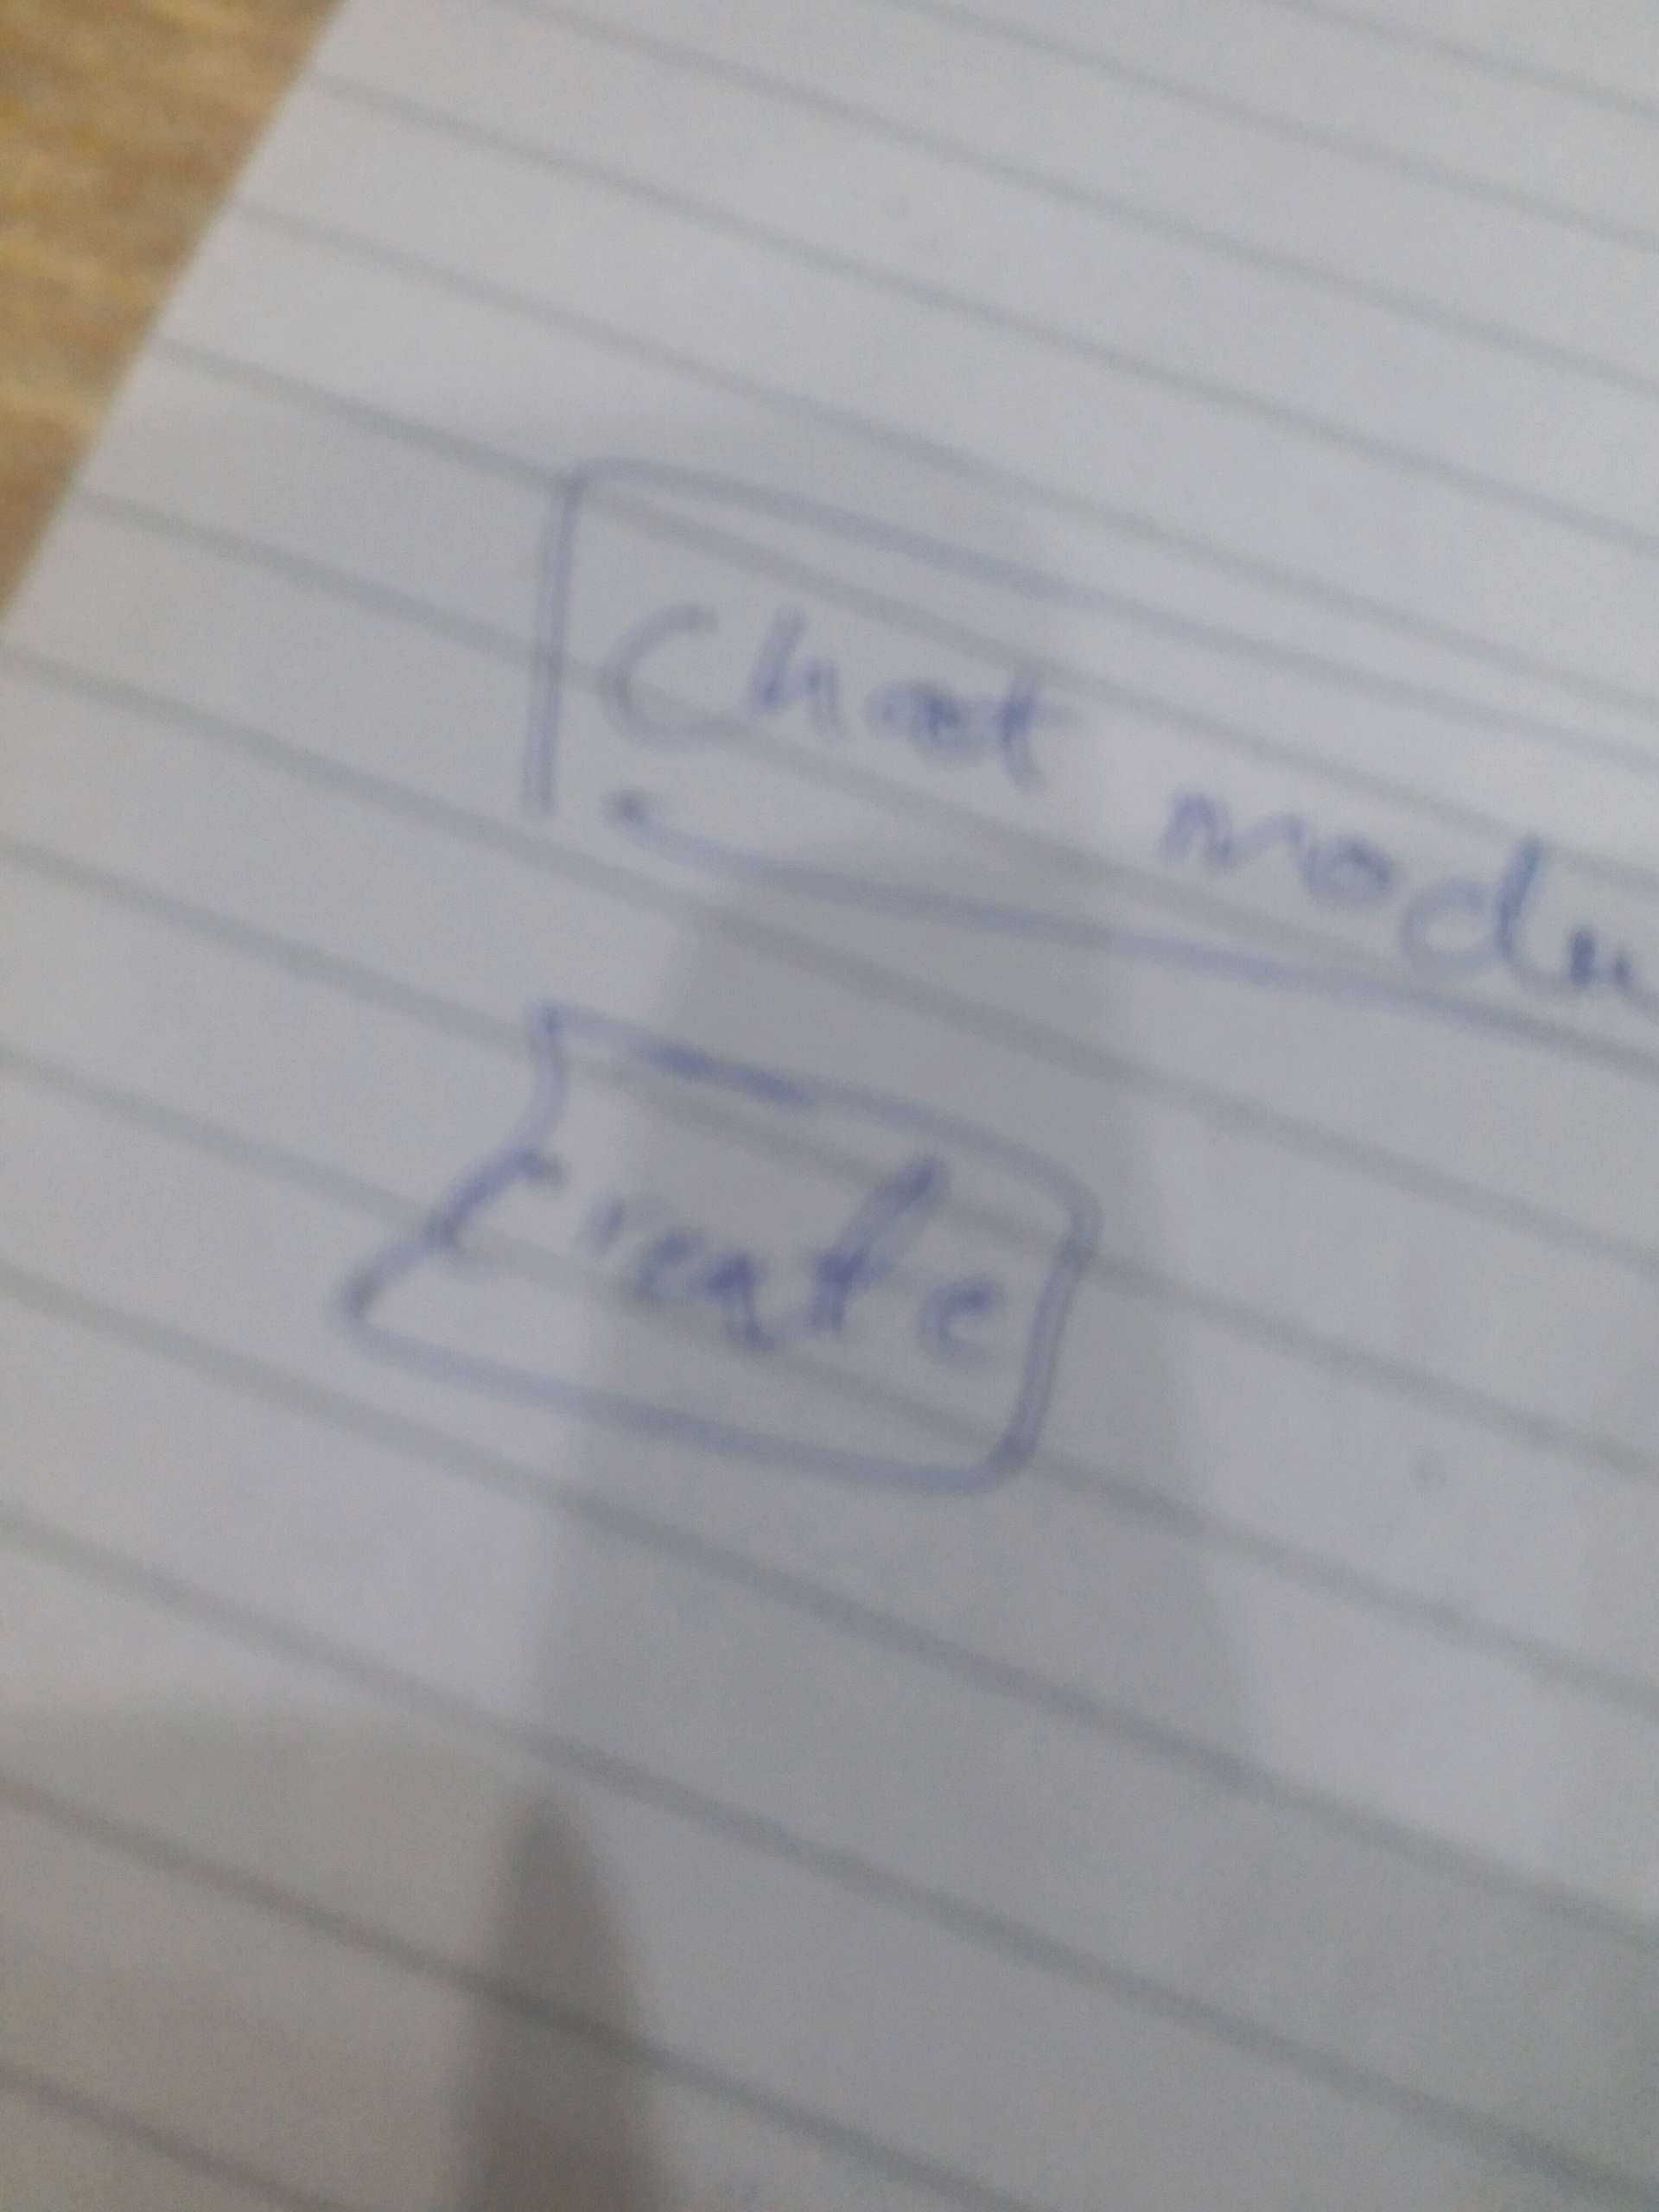 Chat modu
Create